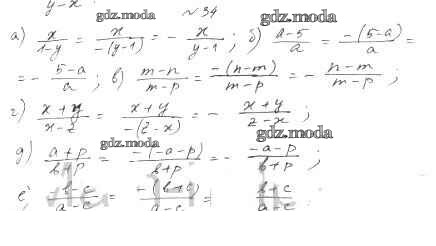 y-x
gdz.moda №34 gdz.moda
а) x/(1-y) = x/(-(y-1)) = - x/(y-1) ; б) (a-5)/a = (-(5-a))/a =
= - (5-a)/a ; в) (m-n)/(m-p) = (-(n-m))/(m-p) = - (n-m)/(m-p) ;
г) (x+y)/(x-z) = (x+y)/(-(z-x)) = - (x+y)/(z-x) ;
gdz.moda gdz.moda
д) (a+p)/(b+p) = (-(-a-p))/(b+p) = - (-a-p)/(b+p) ;
е) (-b-c)/(a-c) = (-(b+c))/(a-c) = (b+c)/(a-c)